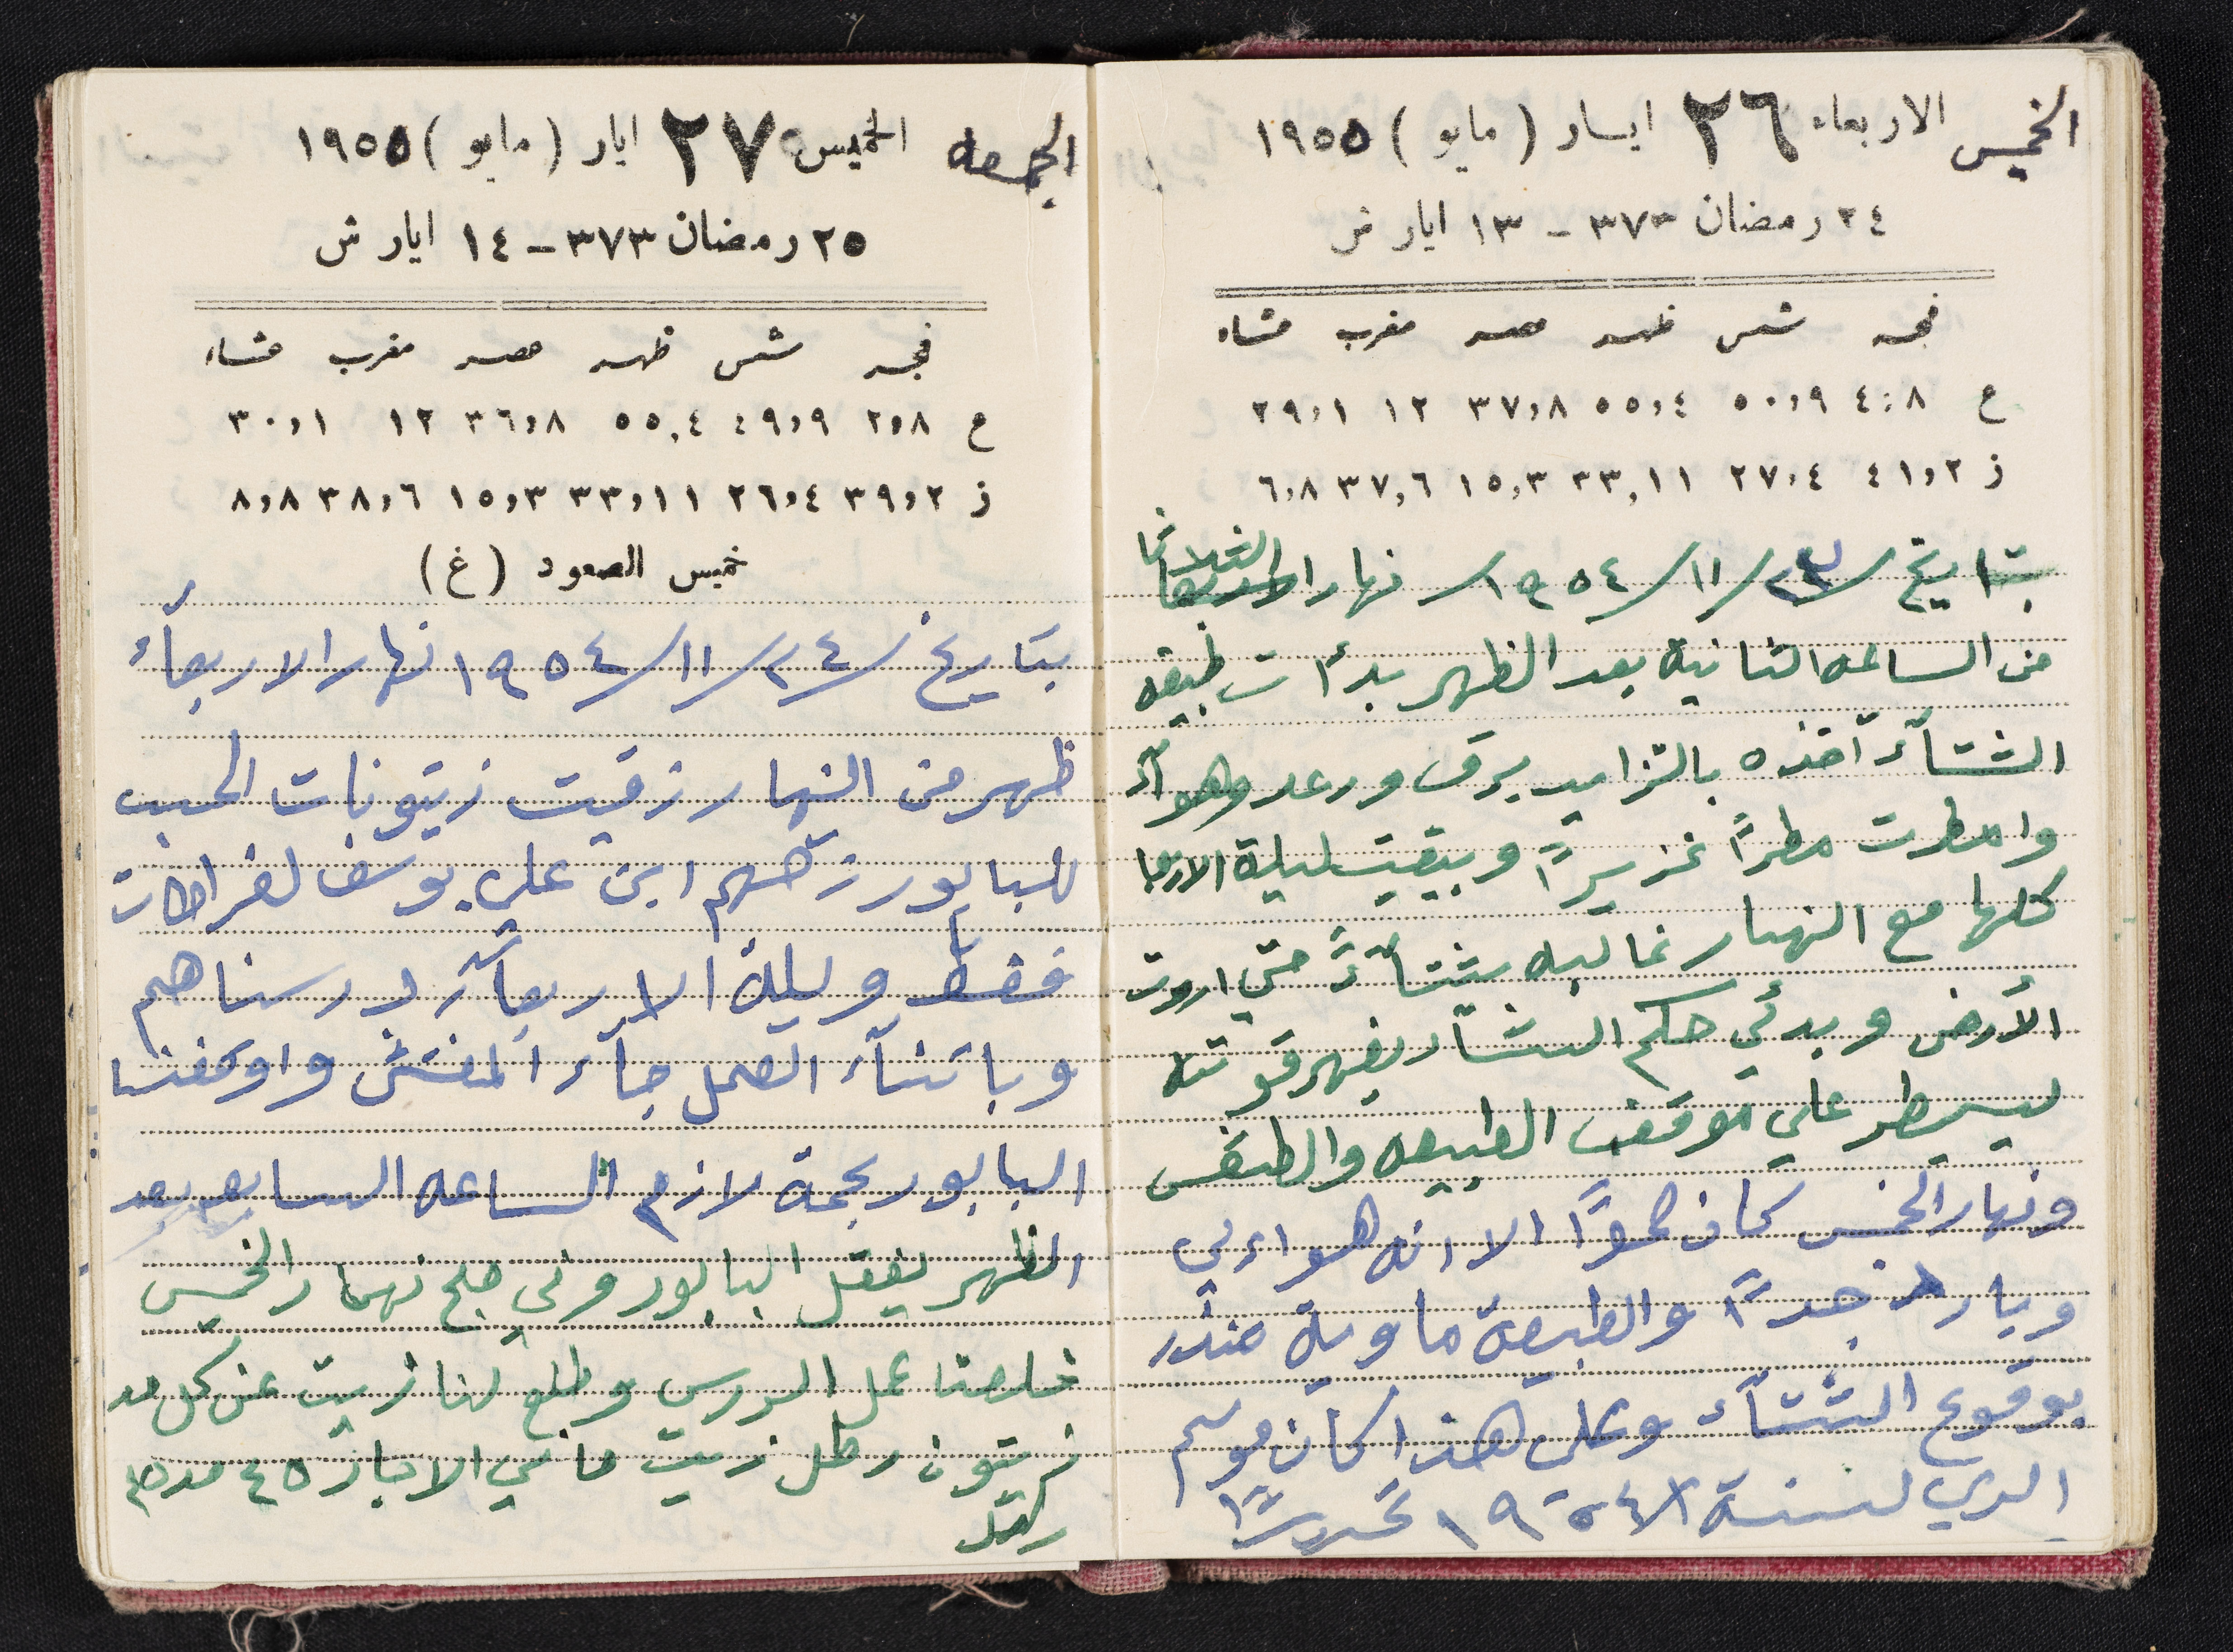 الخميس الاربعاء ٢٦ ايار (مايو) ١٩٥٥
٢٤ رمضان ٣٧٣ - ١٣ ايار ش
فجر شمس ظهر عصر مغرب عشاء
ع ٤:٨ ٥٠,٩ ٥٥,٤ ٣٧,٨ ١٢ ٢٩,١
ز ٤١,٢ ٢٧,٤ ٣٣,١١ ١٥,٣ ٣٧,٦ ٦,٨
بتاريخ ٢٣/١١/١٩٥٤ نهار الثلاثا
من الساعه الثانية بعد الظهر بدأت طبيعه
الشتآء آخذه بالتزايد برق ورعد وهوآء
وامطرت مطراً غزيراً وبقيت ليلة الاربعا
كلها مع النهار غالبه شتآءً حتي اروت
الأرض وبدئي حكم الشتآء يضهر قوته
ليسيطر علي موقف الطبيعه والطقس
ونهار الخمس كان صحواً الا انه هواء
وبارد جداً والطبيعة ماوية منذر
بوقوع الشتآء وعلى هذا كان موسم
الري لسنة ١٩٥٤
الجمعه الخميس ٢٧ ايار (مايو) ١٩٥٥
٢٥ رمضان ٣٧٣ - ١٤ ايار ش
فجر شمس ظهر عصر مغرب عشاء
ع ٢,٨ ٤٩,٩ ٥٥,٤ ٣٦,٨ ١٢ ٣٠,١
ز ٣٩,٢ ٢٦,٤ ٣٣,١١ ١٥,٣ ٣٨,٦ ٨,٨
خميس الصعود (غ)
بتاريخ ٢٤/١١/١٩٥٤ نهار الاربعآء
ظهر من النهار نقيت زيتونات الحب
للبابور ابن علي يوسف
فقط وليلة الاربعآء درسناهم
وباثنآء العمل جآء المفتش واوقفنا
البابور بحجة لازم الساعه السابعه بعد
الظهر يقفل البابور وفي صبح نهار الخميس
خلصنا عمل الدرس وطلع لنا زيت عن كل مد
زيتون رطل زيت مافي الاجار ٤٥ مد
رطل